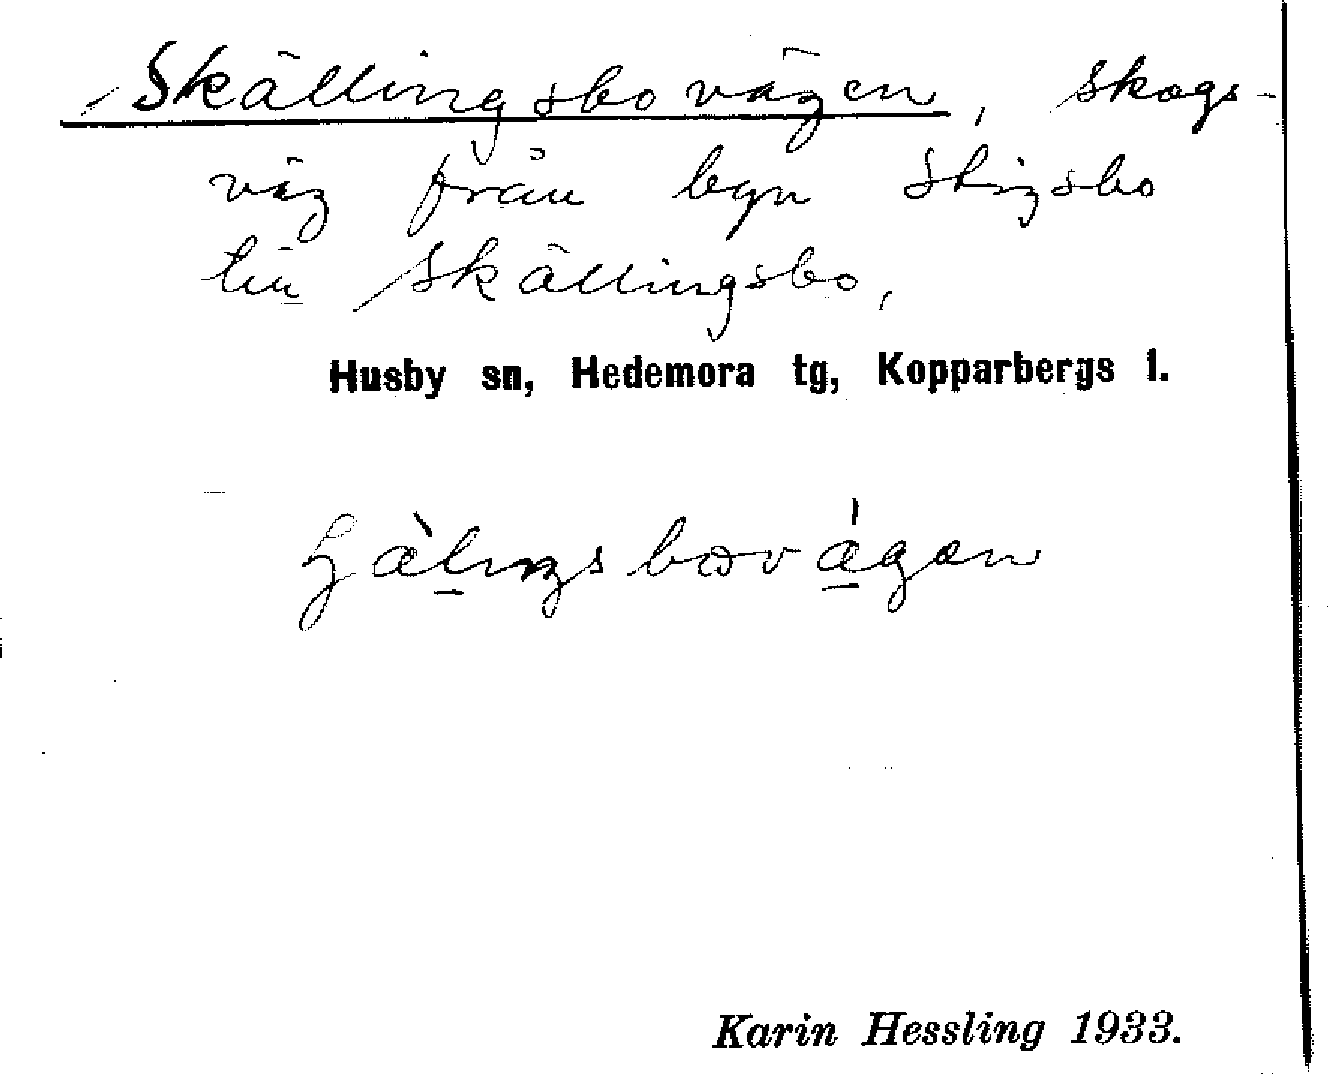 Skällingsbovägen, skogs-
väg från byn Stigsbo
till Skällingsbo,
Husby sn, Hedemora tg, Kopparbergs l.
Karin Hessling 1933.